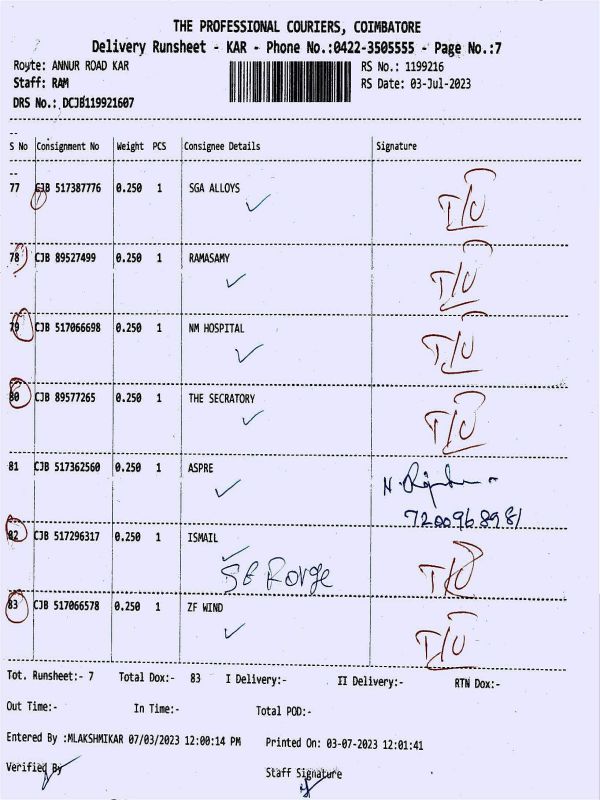 THE PROFESSIONAL COURIERS, COIMBATORE
Delivery Runsheet - KAR - Phone No.:0422-3505555 - Page No.:7
Royte: ANNUR ROAD KAR RS No.: 1199216
Staff: RAM RS Date: 03-Jul-2023
DRS No.: DCJB119921607
S No Consignment No Weight PCS Consignee Details Signature
77 CJB 517387776 0.250 1 SGA ALLOYS T/U
78 CJB 89527499 0.250 1 RAMASAMY T/U
79 CJB 517066698 0.250 1 NM HOSPITAL T/U
80 CJB 89577265 0.250 1 THE SECRATORY T/U
81 CJB 517362560 0.250 1 ASPRE
7200968981
82 CJB 517296317 0.250 1 ISMAIL T/U
83 CJB 517066578 0.250 1 ZF WIND T/U
Tot. Runsheet:- 7 Total Dox:- 83 I Delivery:- II Delivery:- RTN Dox:-
Out Time:- In Time:- Total POD:-
Entered By :MLAKSHMIKAR 07/03/2023 12:00:14 PM Printed On: 03-07-2023 12:01:41
Verified By Staff Signature